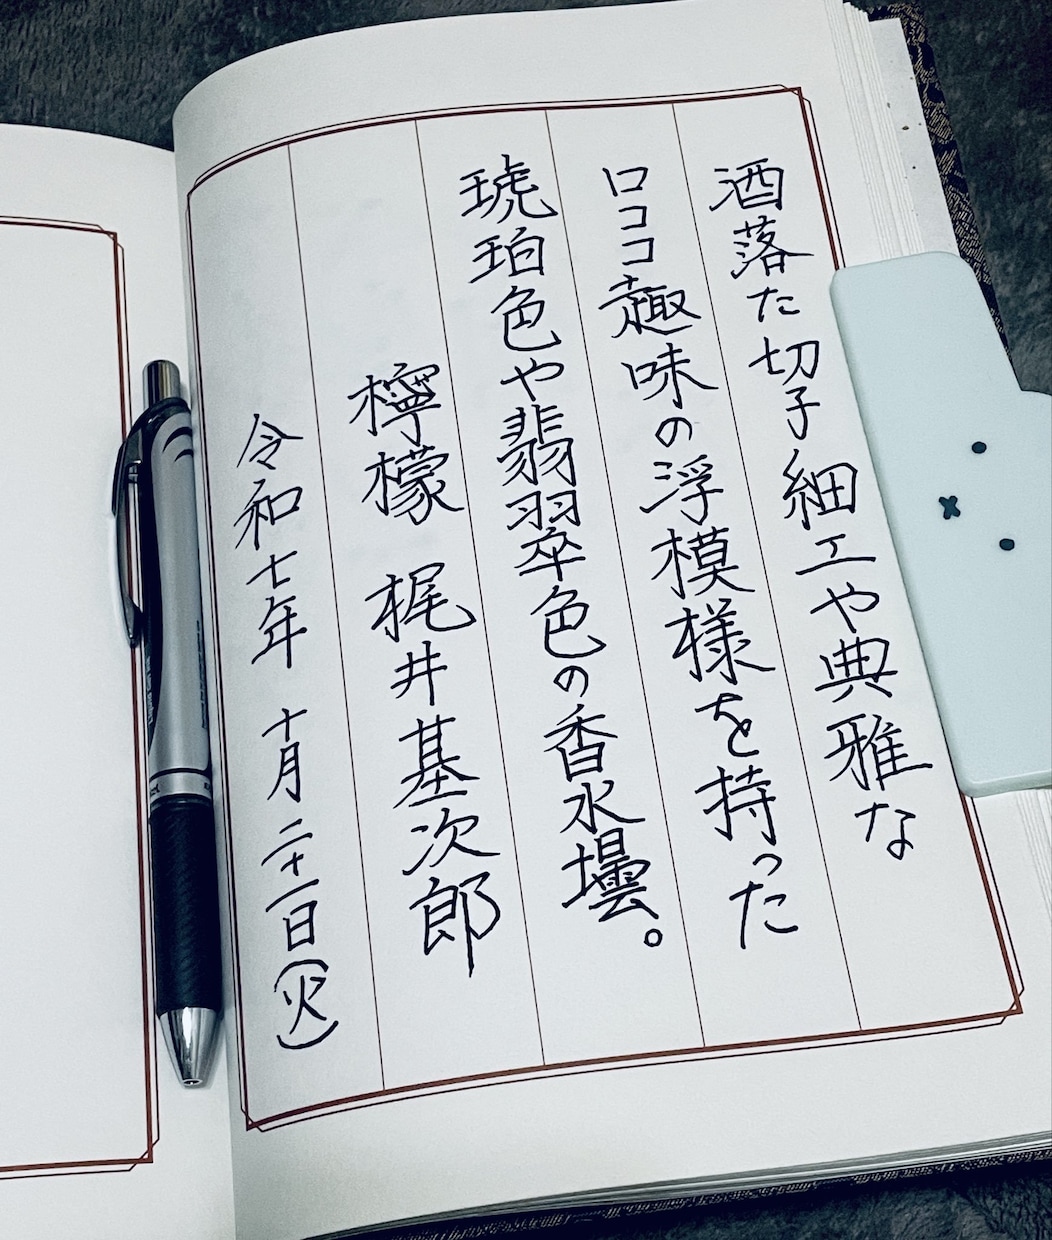 洒落た切子細工や典雅な
ロココ趣味の浮模様を持った
琥珀色や翡翠色の香水壜。
檸檬 梶井基次郎
令和七年 十月二十一日(火)